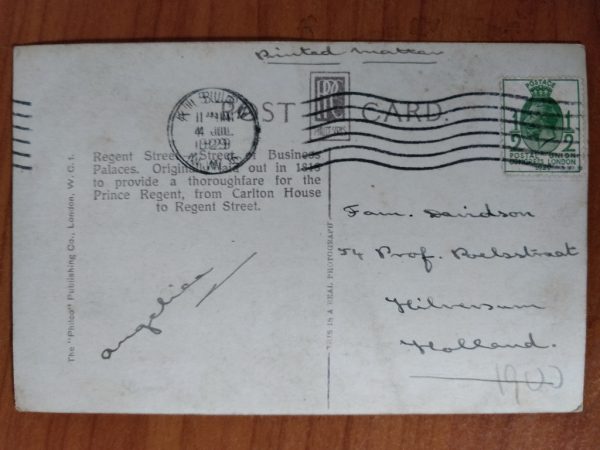 Printed matter
POST CARD.
11 AM
4 JUL
1929
POSTAGE
1/2 1/2
POSTAL UNION
CONGRESS LONDON
1929
Regent Street. Street of Business
Palaces. Originally laid out in 1813
to provide a thoroughfare for the
Prince Regent, from Carlton House
to Regent Street.
The "Philco" Publishing Co., London, W.C.1.
THIS IS A REAL PHOTOGRAPH
Angelica
Fam. Davidson
54 Prof. Roelsstraat
Hilversum
Holland.